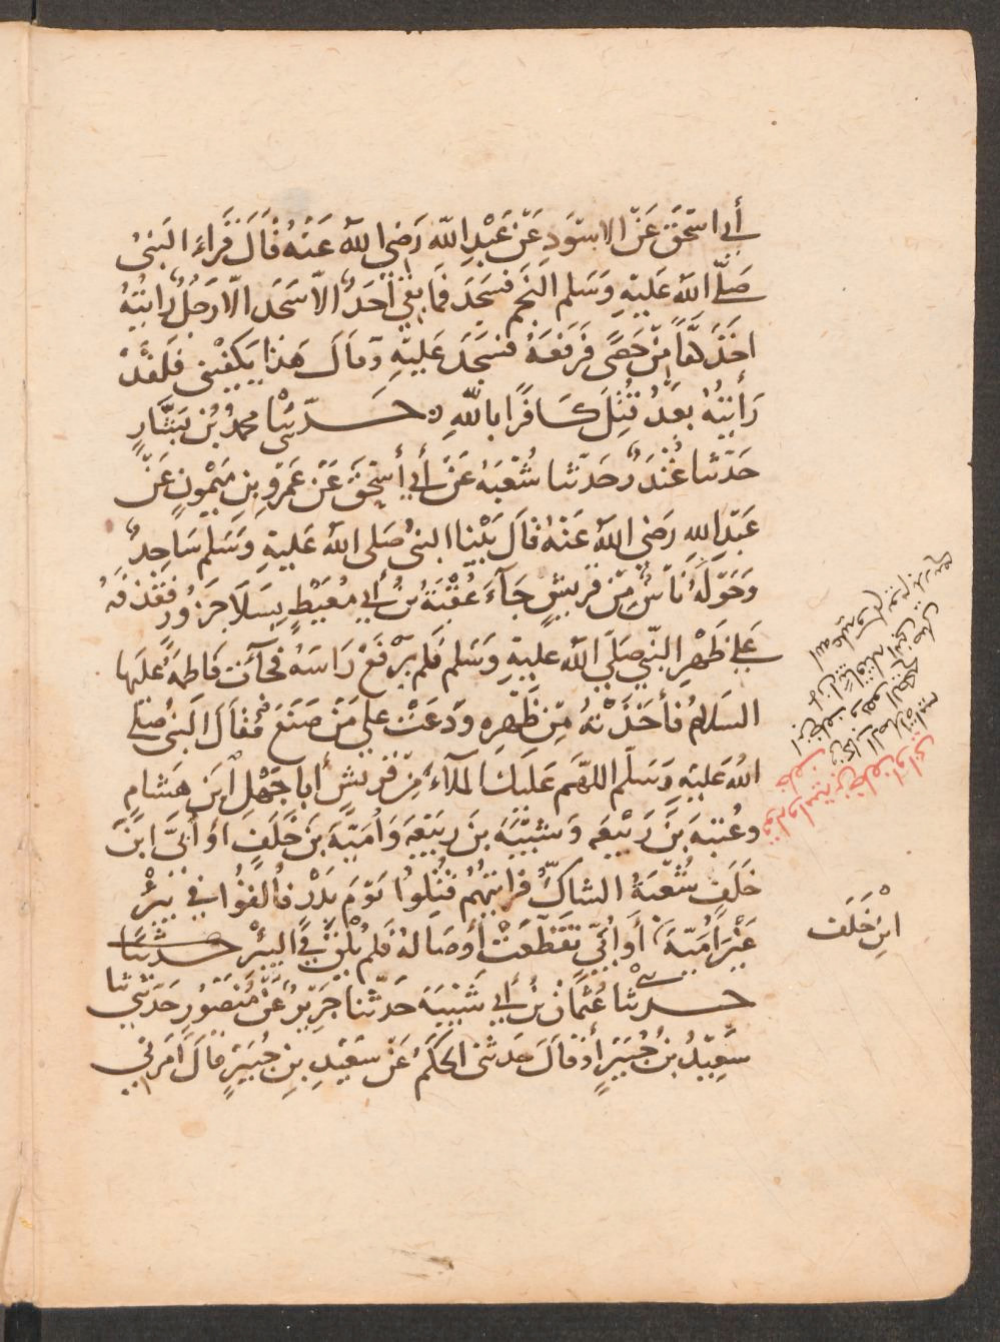 أَبي اسحَقَ عَنِ الاسوَدِ عَنْ عَبْدِ اللّهِ رَضي اللهُ عَنْهُ قَالَ قَرَاءَ النبيُ
صَلّى اللهُ عَلَيْهِ وَسَلم النَجم فسَجَدَ فما بَقِيَ أحَدٌ الاّ سَجَدَ الّا رَجُلٌ رَايتُهُ
اخَذَ كَفّاً مِنْ حَصًى فَرَفَعَهُ فسَجَدَ عَلَيْهِ وقالَ هَذا يَكفيْني فَلَقَدْ
رَأيتُهُ بَعدُ قُتِلَ كَافرًا باللّهِ حَدّثني محمدُ بْنُ بَشَّارٍ
حَدّثنا غُنْدَرٌ حَدّثنا شُعْبَة عَنْ أَبي إسحَقَ عَنْ عَمْرِو بنِ مَيْمُونٍ عَنْ
عَبْدِ اللهِ رَضي اللهُ عَنْهُ قالَ بَيْنا النبيُ صَلى اللهُ عَلَيهِ وَسَلم سَاجِدٌ
وَحَوْلَهُ نَاسٌ مِنْ قرَيشٍ جَآءَ عُقْبَةُ بنُ أَبي مُعَيْطٍ بِسَلَا جَزُورٍ فقَذفَهُ
عَلى ظَهْرِ النّبي صَلَى اللهُ عليهِ وَسَلم فلَم يَرْفَعْ رَاسَهُ فجآءَت فَاطمَةُ عَلَيها
السَلامُ فأخَذَتْهُ مِنْ ظَهْرِه وَدَعَتْ عَلى مَنْ صَنَعَ فقَالَ النبيُ صَلى
اللهُ عَلَيْهِ وَسَلم اللهُمَ عَليكَ الملآءَ مِنْ قرَيشٍ أبَا جَهْلِ ابنَ هشامٍ
وعُتبَةَ بنَ رَبيْعَه وَشيبَةَ بنَ رَبيعَة وَأُمَيّةَ بنَ خَلَفٍ اوْ أُبَيّ ابْنَ
خَلَفٍ شُعْبَةُ الشاكّ فرَايتُهُم قُتِلُوا يَوْمَ بَدْرٍ فاُلقُوا في بِئْرٍ
غَيْرَ اُمَيّةَ أَو أُبَيّ تقَطّعَتْ أوْصَالهُ فلم يُلْقَ في البِئْر حَدثنا
حَدثني عُثْمانُ بنُ أَبي شَيْبَة حَدّثنا جَرِيْرٌ عَنْ مَنْصُورٍ حَدثني
سَعِيْدُ بنُ جُبَيرٍ أوْ قالَ حَدثني الحكَمُ عَنْ سعِيْدِ بنِ جُبيرٍ قالَ امَرني
ابن خَلَفَ